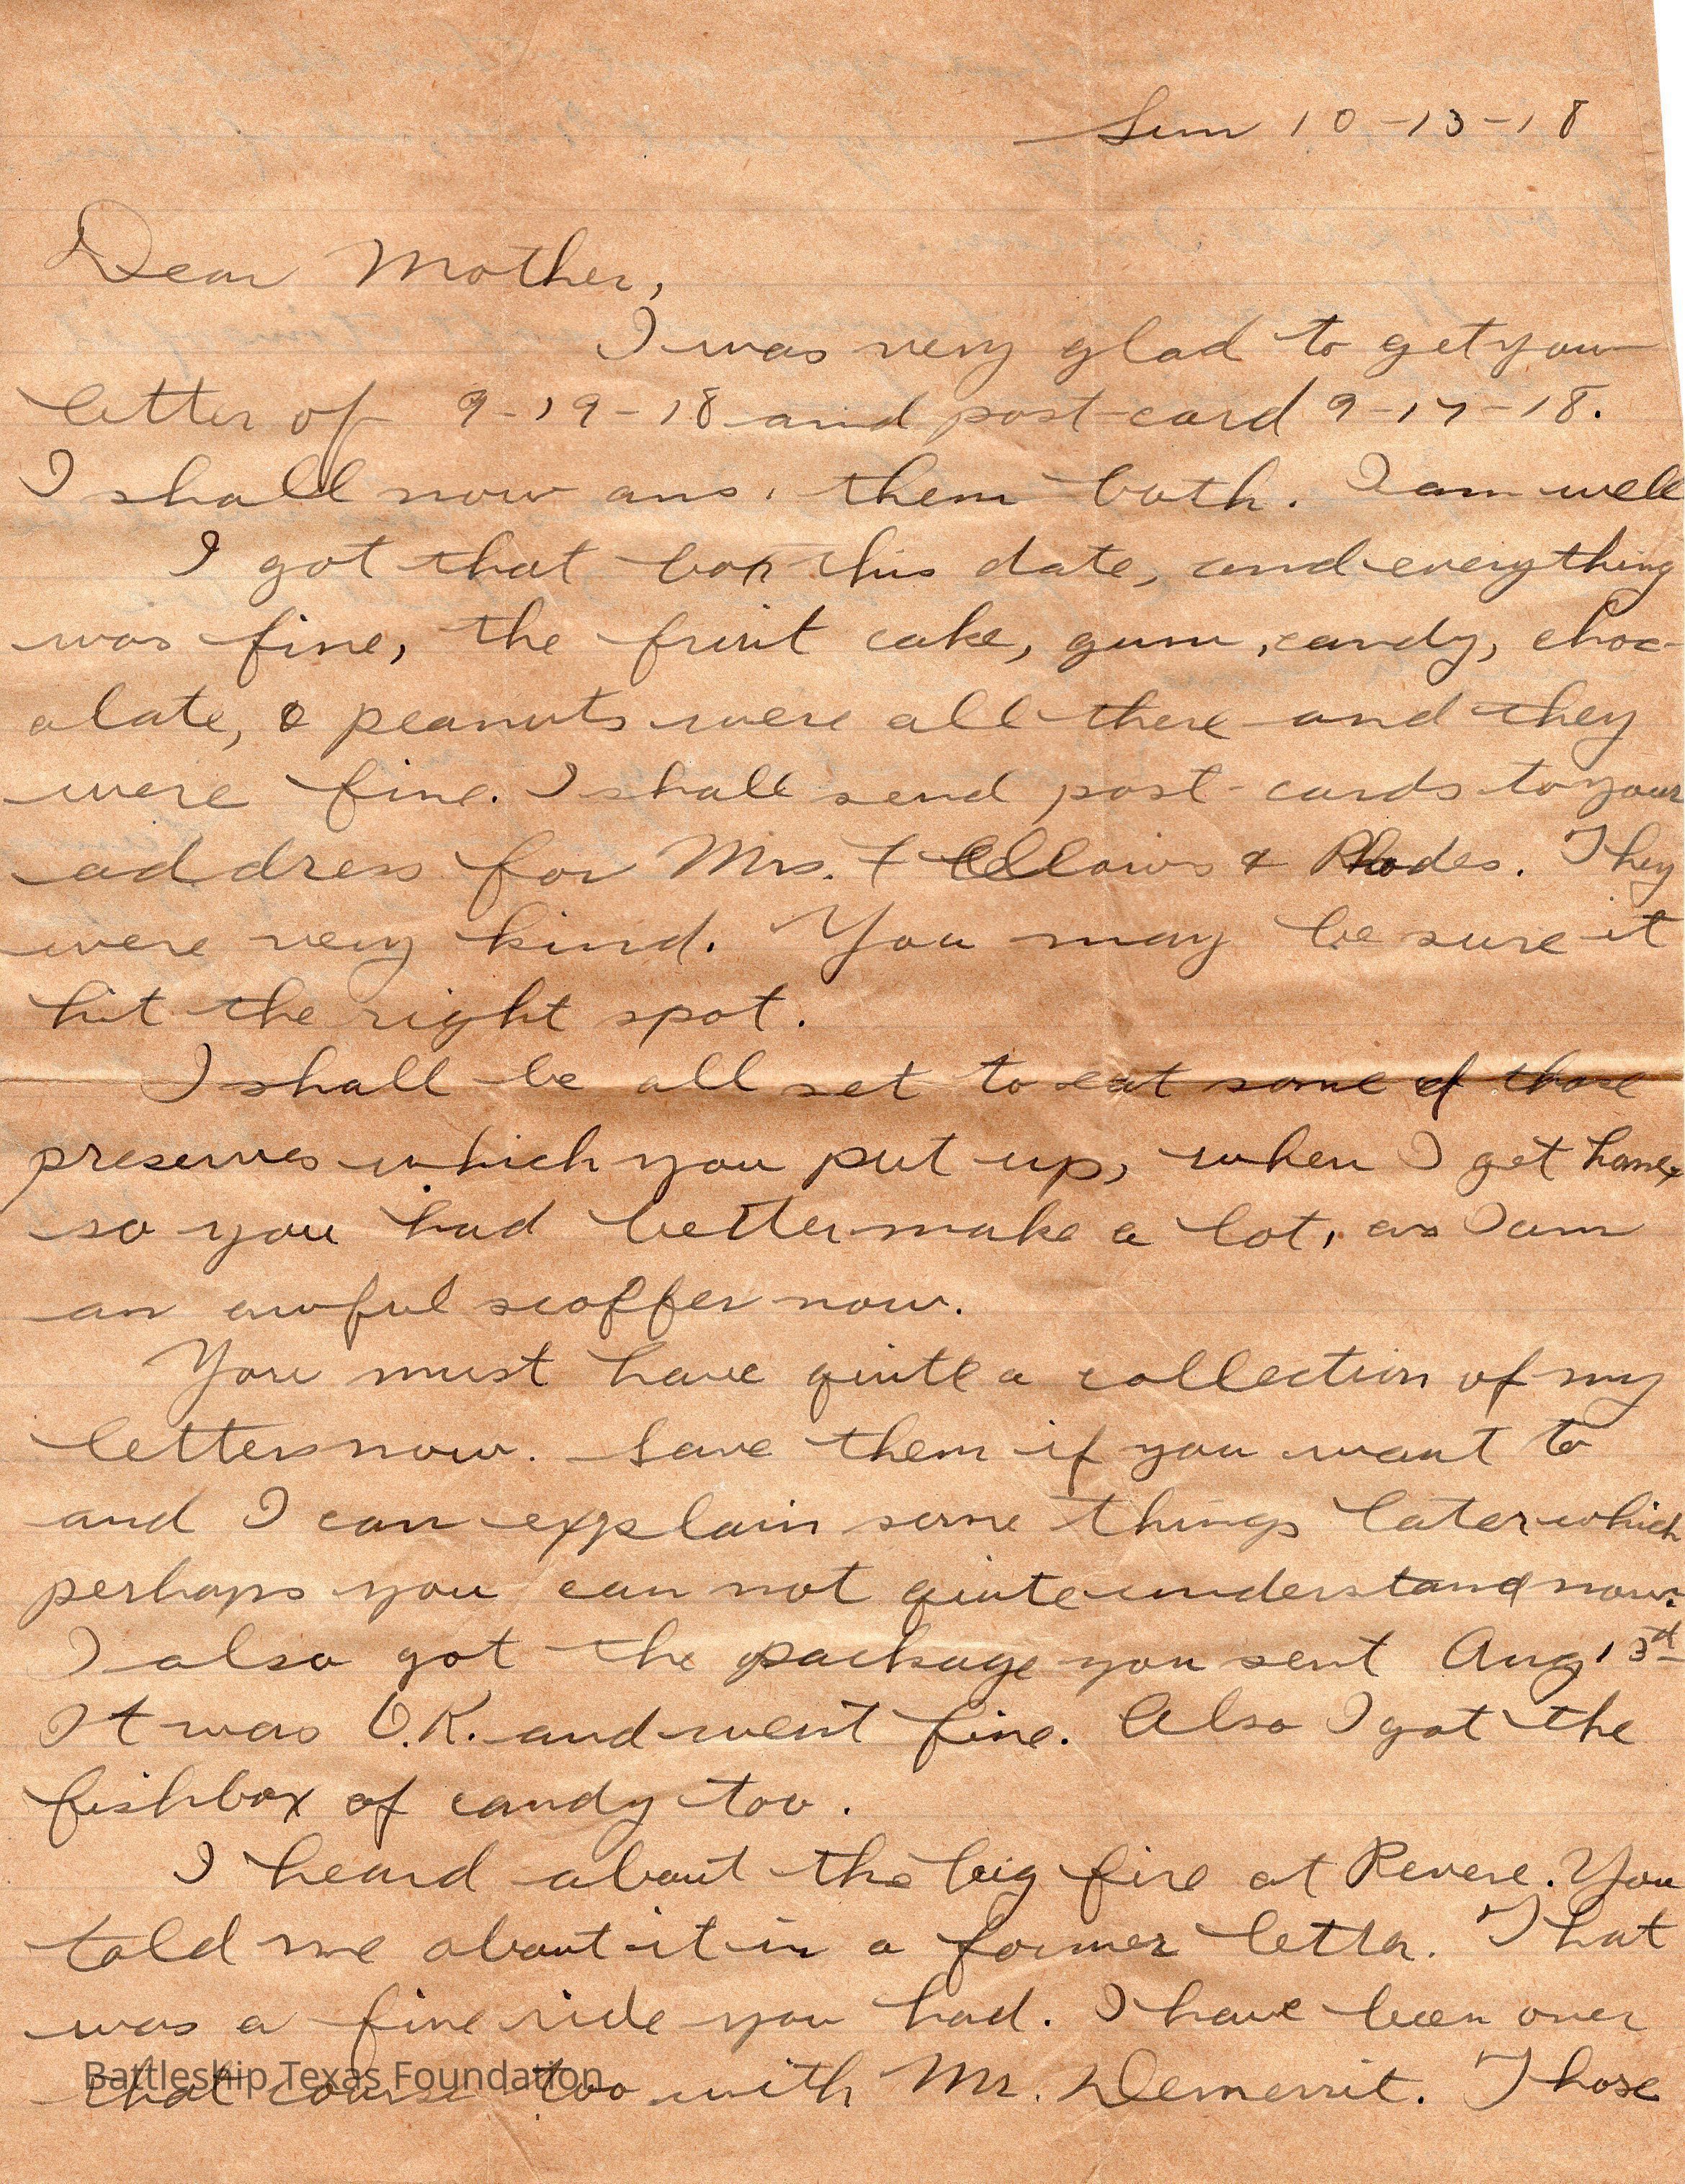 Sun 10-13-18
Dear Mother,
I was very glad to get your
letter of 9-19-18 and post-card 9-17-18.
I shall now ans. them both. I am well
I got that box this date, and everything
was fine, the fruit cake, gum, candy, choc-
olate, & peanuts were all there and they
were fine. I shall send post-cards to your
address for Mrs. Fellows & Rhodes. They
were very kind. You may be sure it
hit the right spot.
I shall be all set to eat some of those
preserves which you put up, when I get home,
so you had better make a lot, as I am
an awful scoffer now.
You must have quite a collection of my
letters now. Save them if you want to
and I can explain some things later which
perhaps you can not quite understand now.
I also got the package you sent Aug 13rd
It was O.K. and went fine. Also I got the
fishbox of candy too.
I heard about the big fire at Revere. You
told me about it in a former letter. That
was a fine ride you had. I have been over
that course too with Mr. Demerrit. Those
Battleship Texas Foundation